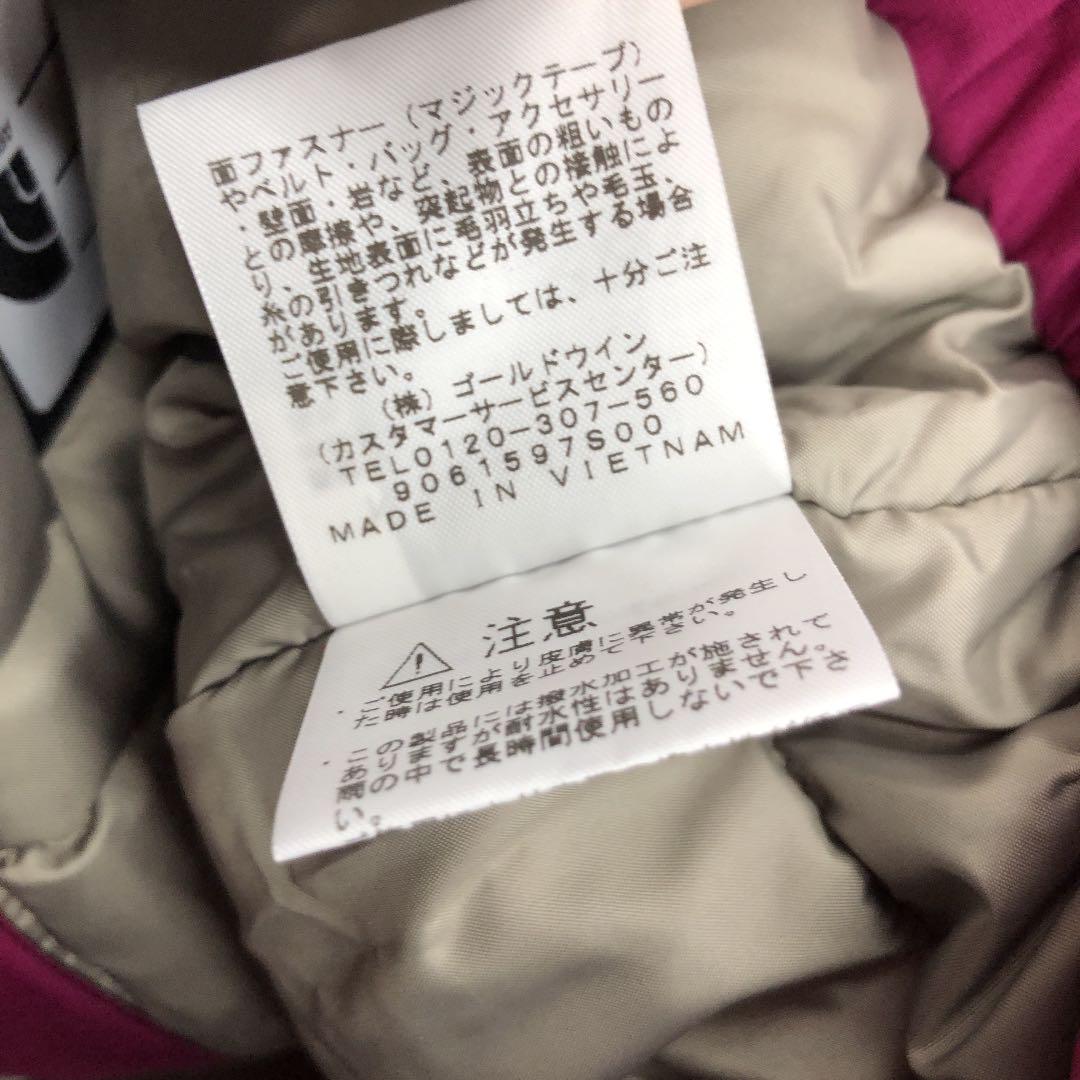 面ファスナー(マジックテープ)
やベルト・バッグ・アクセサリー
・壁面・岩など、表面の粗いもの
との摩擦や、突起物との接触によ
り、生地表面に毛羽立ちや毛玉、
糸の引きつれなどが発生する場合
があります。
ご使用に際しましては、十分ご注
意下さい。
(株)ゴールドウイン
(カスタマーサービスセンター)
TEL0120-307-560
9061597S00
MADE IN VIETNAM
注意
・ご使用により皮膚に異常が発生し
た時は使用を止めて下さい。
・この製品には撥水加工が施されて
ありますが耐水性はありません。
雨の中で長時間使用しないで下さ
い。